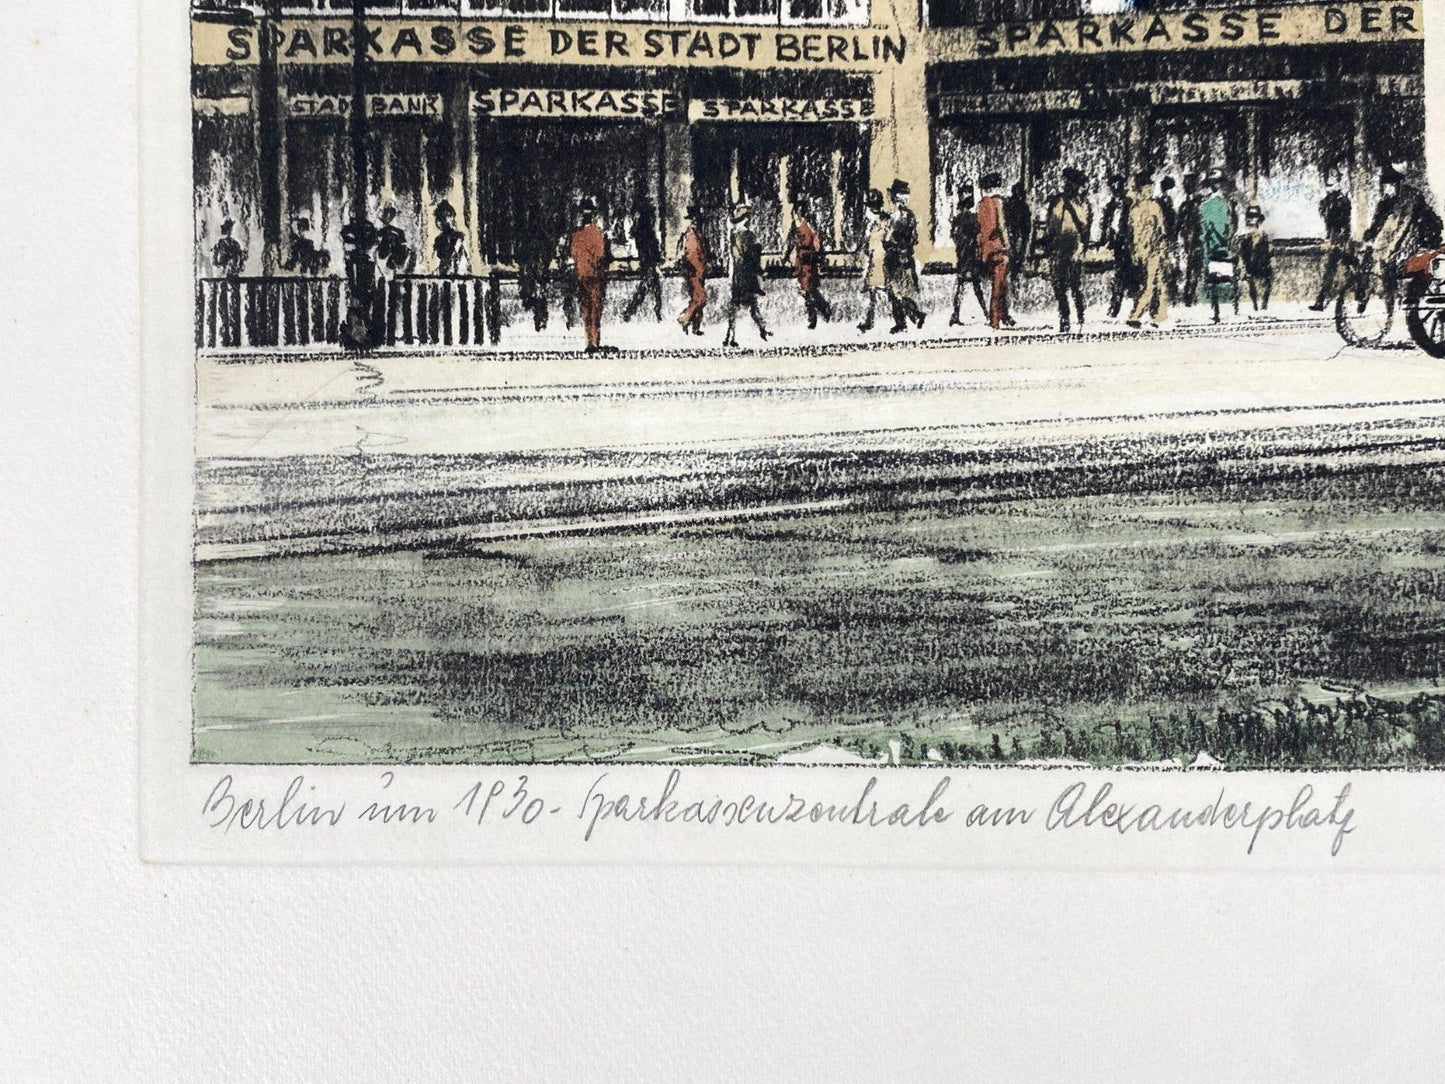 SPARKASSE DER STADT BERLIN
SPARKASSE DER
STADTBANK
SPARKASSE
SPARKASSE
Berlin um 1930 - Sparkassenzentrale am Alexanderplatz